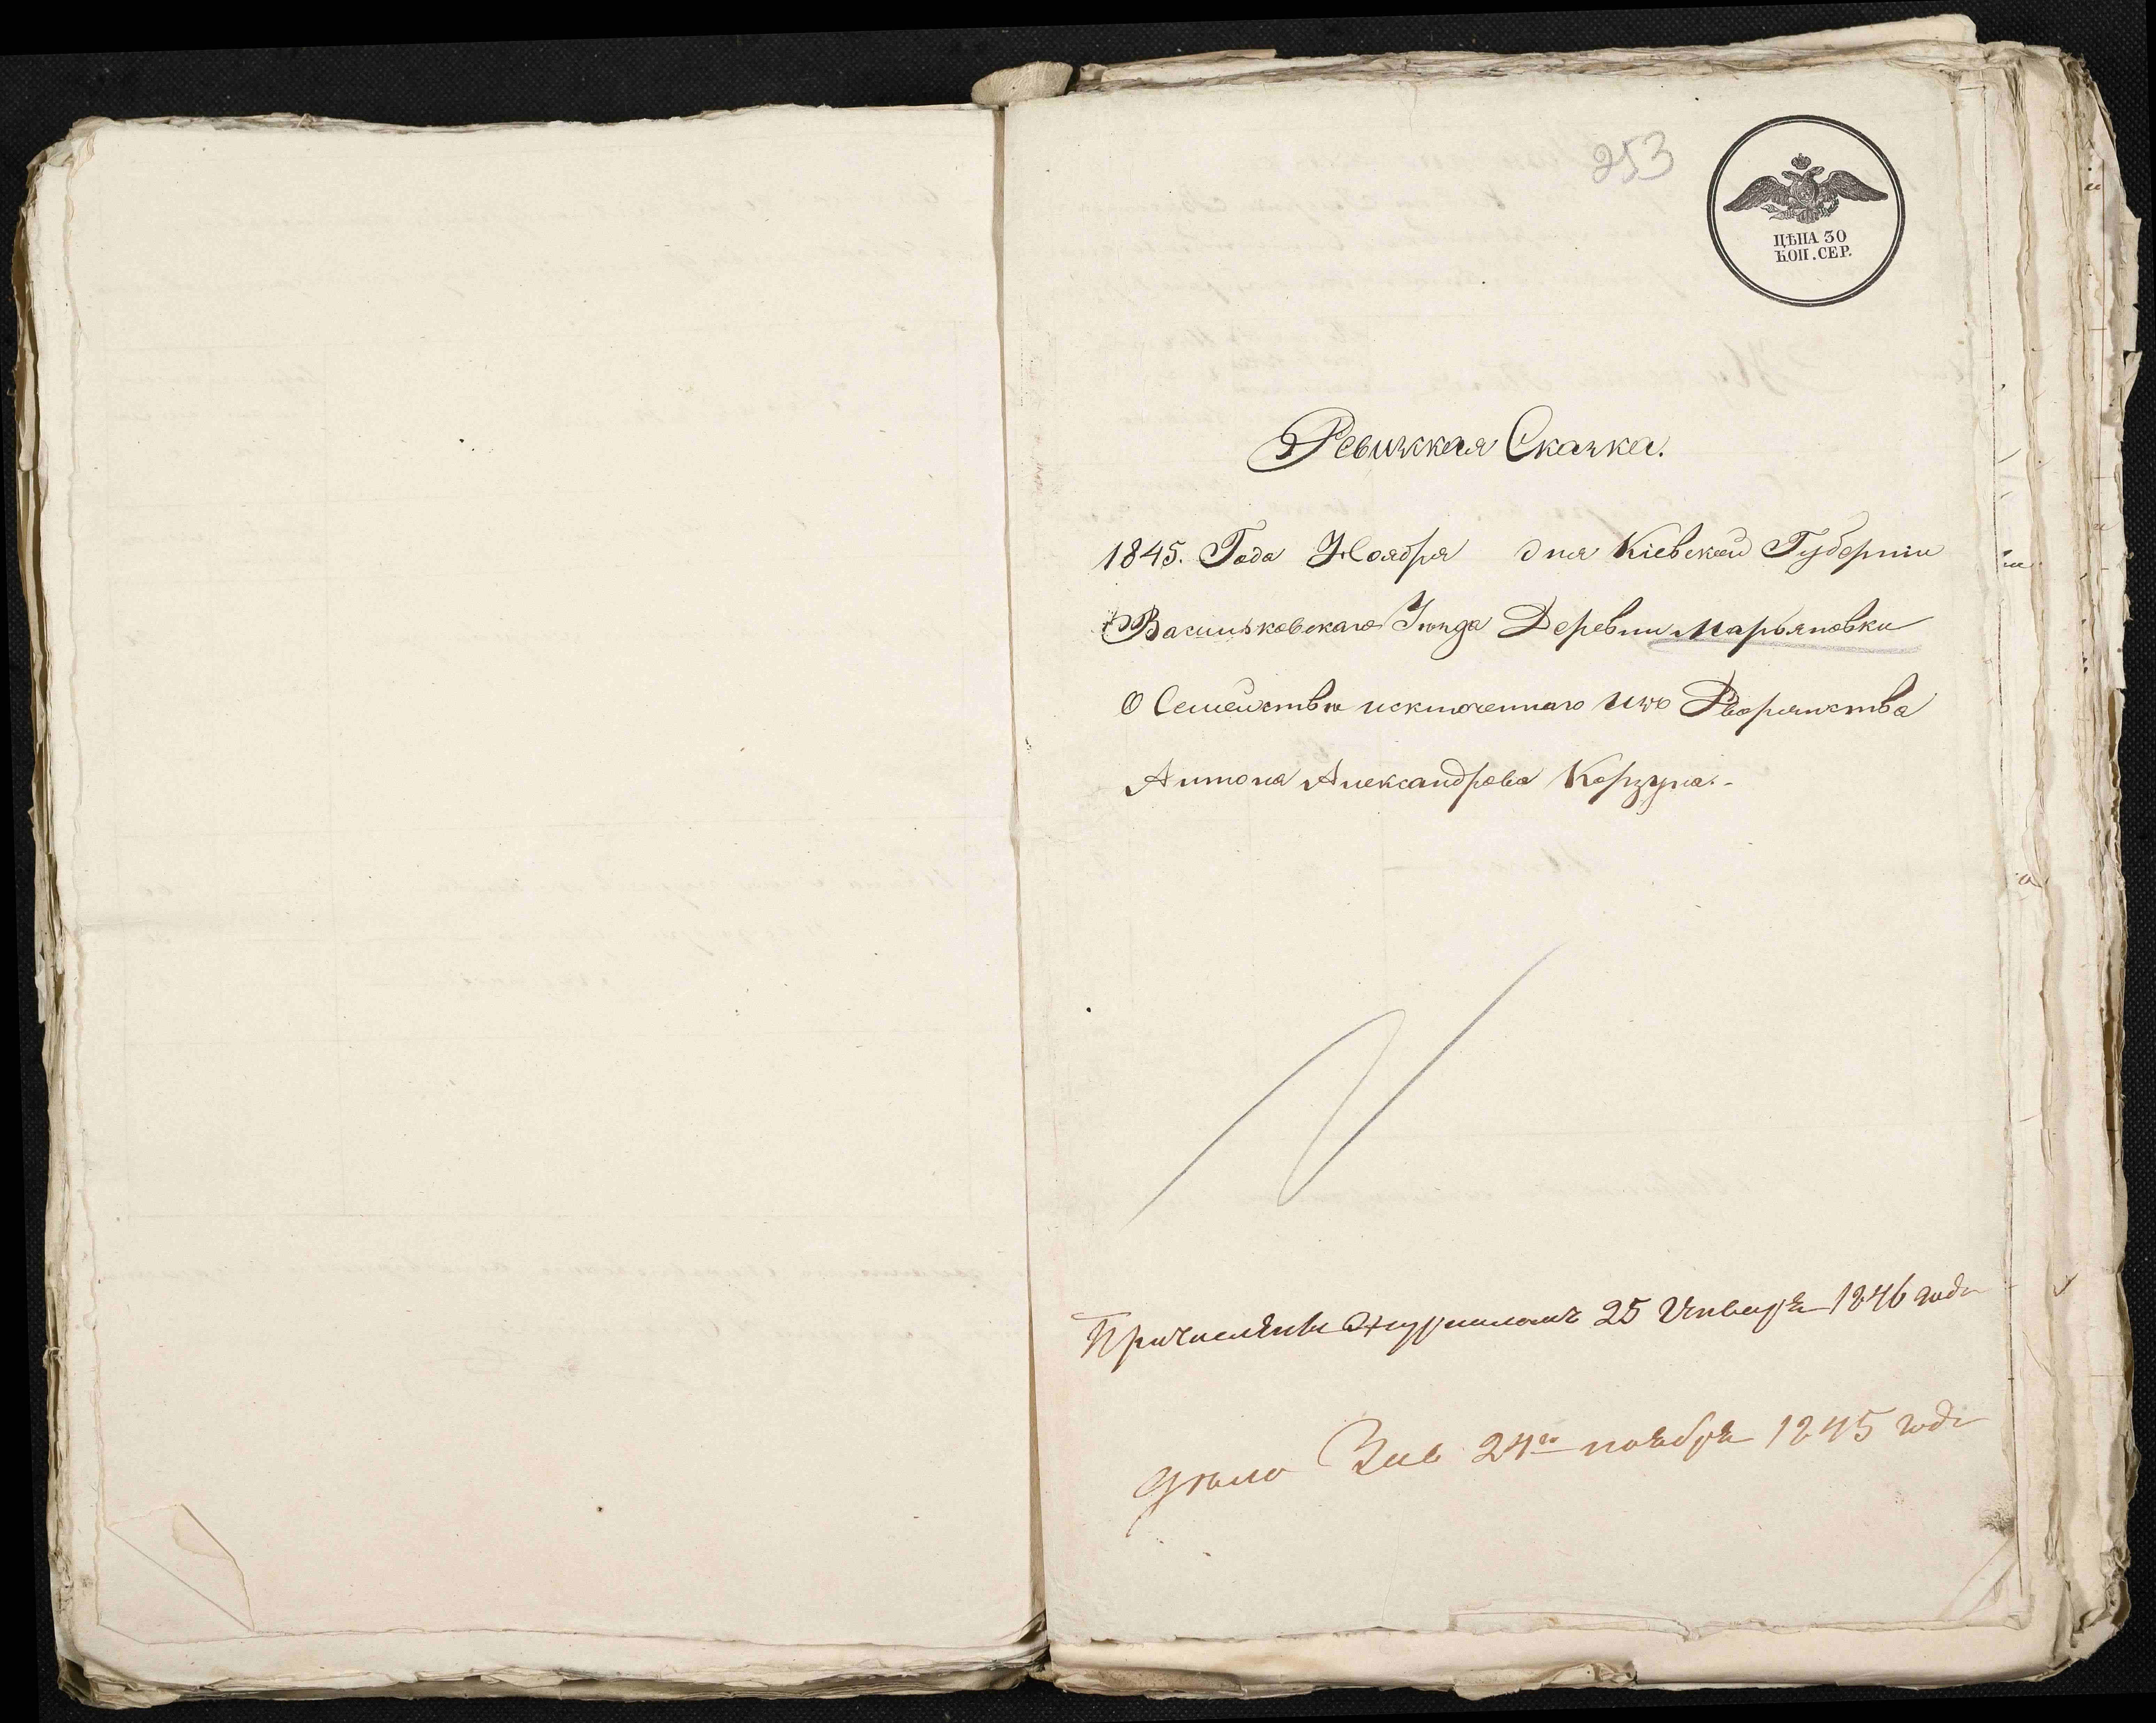 253
ЦѢНА 30
КОП. СЕР.
Ревизкая Сказка.
1845. Года Ноября дня Кіевской Губерніи
Васильковскаго Уѣзда Деревни Марьяновки
О Семействѣ исключеннаго изъ Дворянства
Антона Александрова Корзуна.-
Причислены журналомъ 25 Января 1846 года
дѣло 24го ноября 1845 года